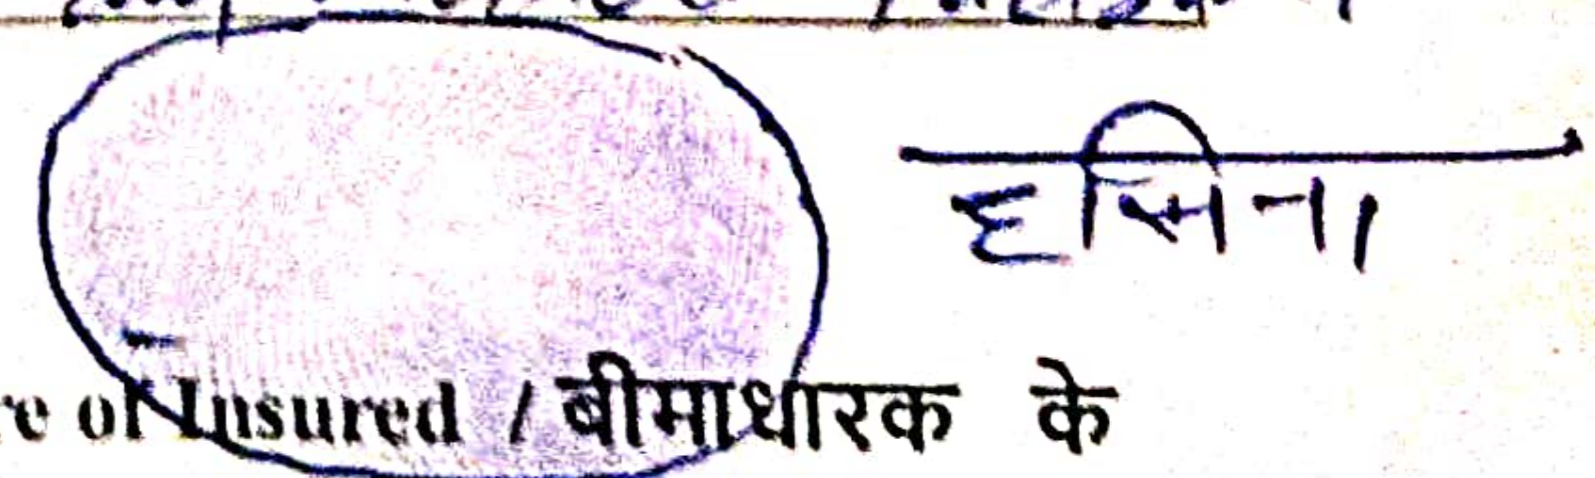 हसिना
of Insured / बीमाधारक के